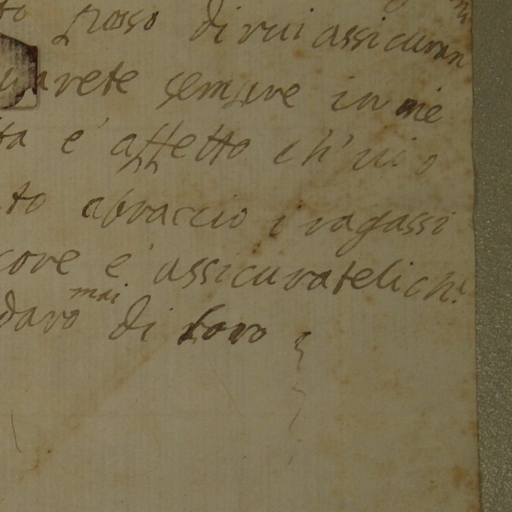 to posso di rui assicuran
uarete sempre in me
ta e' affetto ch' ui o
to abraccio i ragassi
core e' assicuratelich'
daro mai di loro